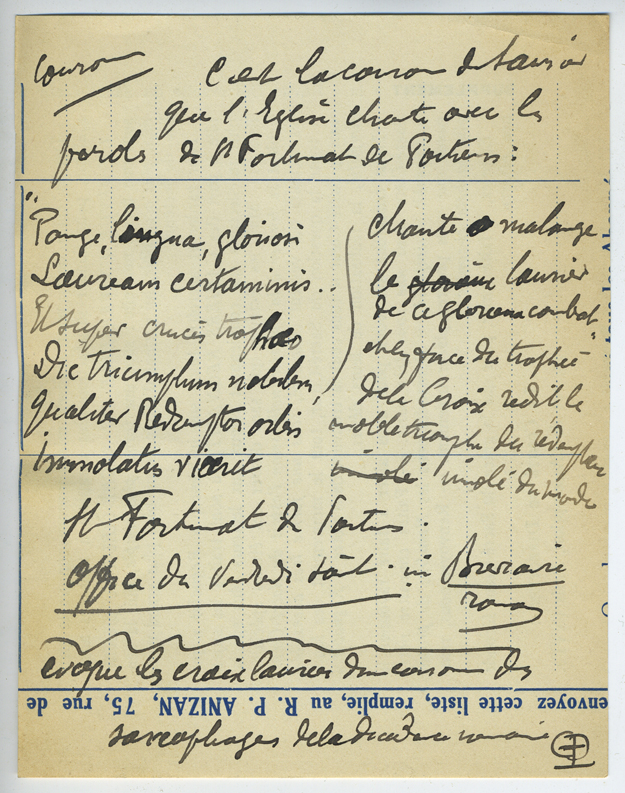 couronne
C'est la couronne du Sauveur
que l'Eglise chante avec les
paroles de St Fortunat de Poitiers :
"Pange, lingua, gloriosi
Laureaum certaminis..
Et super crucis trophaeo
Dic triumphum nobilem,
Qualiter Redemptor orbis
immolatus vicerit
chante o ma langue
le glorieux laurier
de ce glorieux combat"
et en face du trophée
de la Croix redit le
noble triomphe du rédempteur
immolé immolé du monde
St Fortunat de Poitiers.
Office du Vendredi Saint. in Breviaire
romain
evoque les croix laurées d'une couronne des
envoyez cette liste, remplie, au R. P. ANIZAN, 75, rue de
sarcophages de la décadence romaine